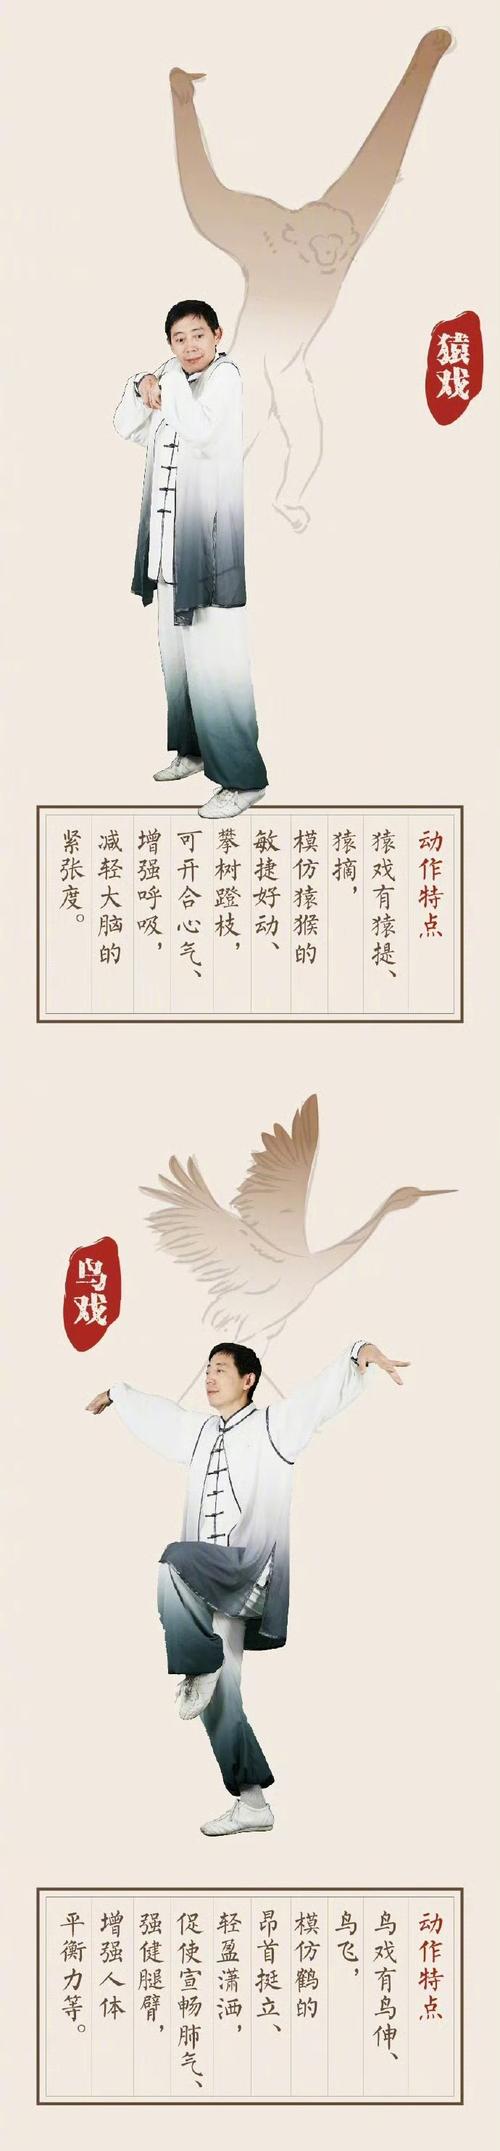 猿戏
动作特点
猿戏有猿提、
猿摘，
模仿猿猴的
敏捷好动、
攀树蹬枝，
可开合心气、
增强呼吸，
减轻大脑的
紧张度。
鸟戏
动作特点
鸟戏有鸟伸、
鸟飞，
模仿鹤的
昂首挺立、
轻盈潇洒，
促使宣畅肺气、
强健腿臂，
增强人体
平衡力等。